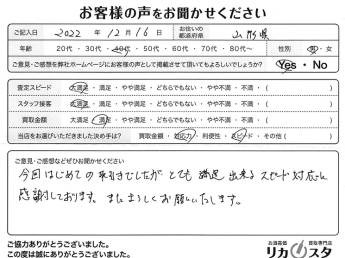 お客様の声をお聞かせください
ご記入日 2022年 12月16日 お住いの都道府県 山形県
年齢 20代・30代・40代・50代・60代・70代・80代〜 性別 男・女
ご意見・ご感想を弊社ホームページにお客様の声として掲載させて頂いてもよろしいでしょうか? Yes・No
査定スピード 大満足・満足・やや満足・どちらでもない・やや不満・不満・他
スタッフ接客 大満足・満足・やや満足・どちらでもない・やや不満・不満・他
買取金額 大満足・満足・やや満足・どちらでもない・やや不満・不満・他
当店をお選びいただきました決め手は? 買取金額・対応力・利便性・スピード・その他( )
ご意見・ご感想などぜひお聞かせください
今回はじめての取引きでしたが とても 満足 出来る スピード対応に
感謝しております。またよろしくお願いいたします。
ご協力ありがとうございました。
この度は誠にありがとうございました。
お酒高価買取専門店
リカスタ